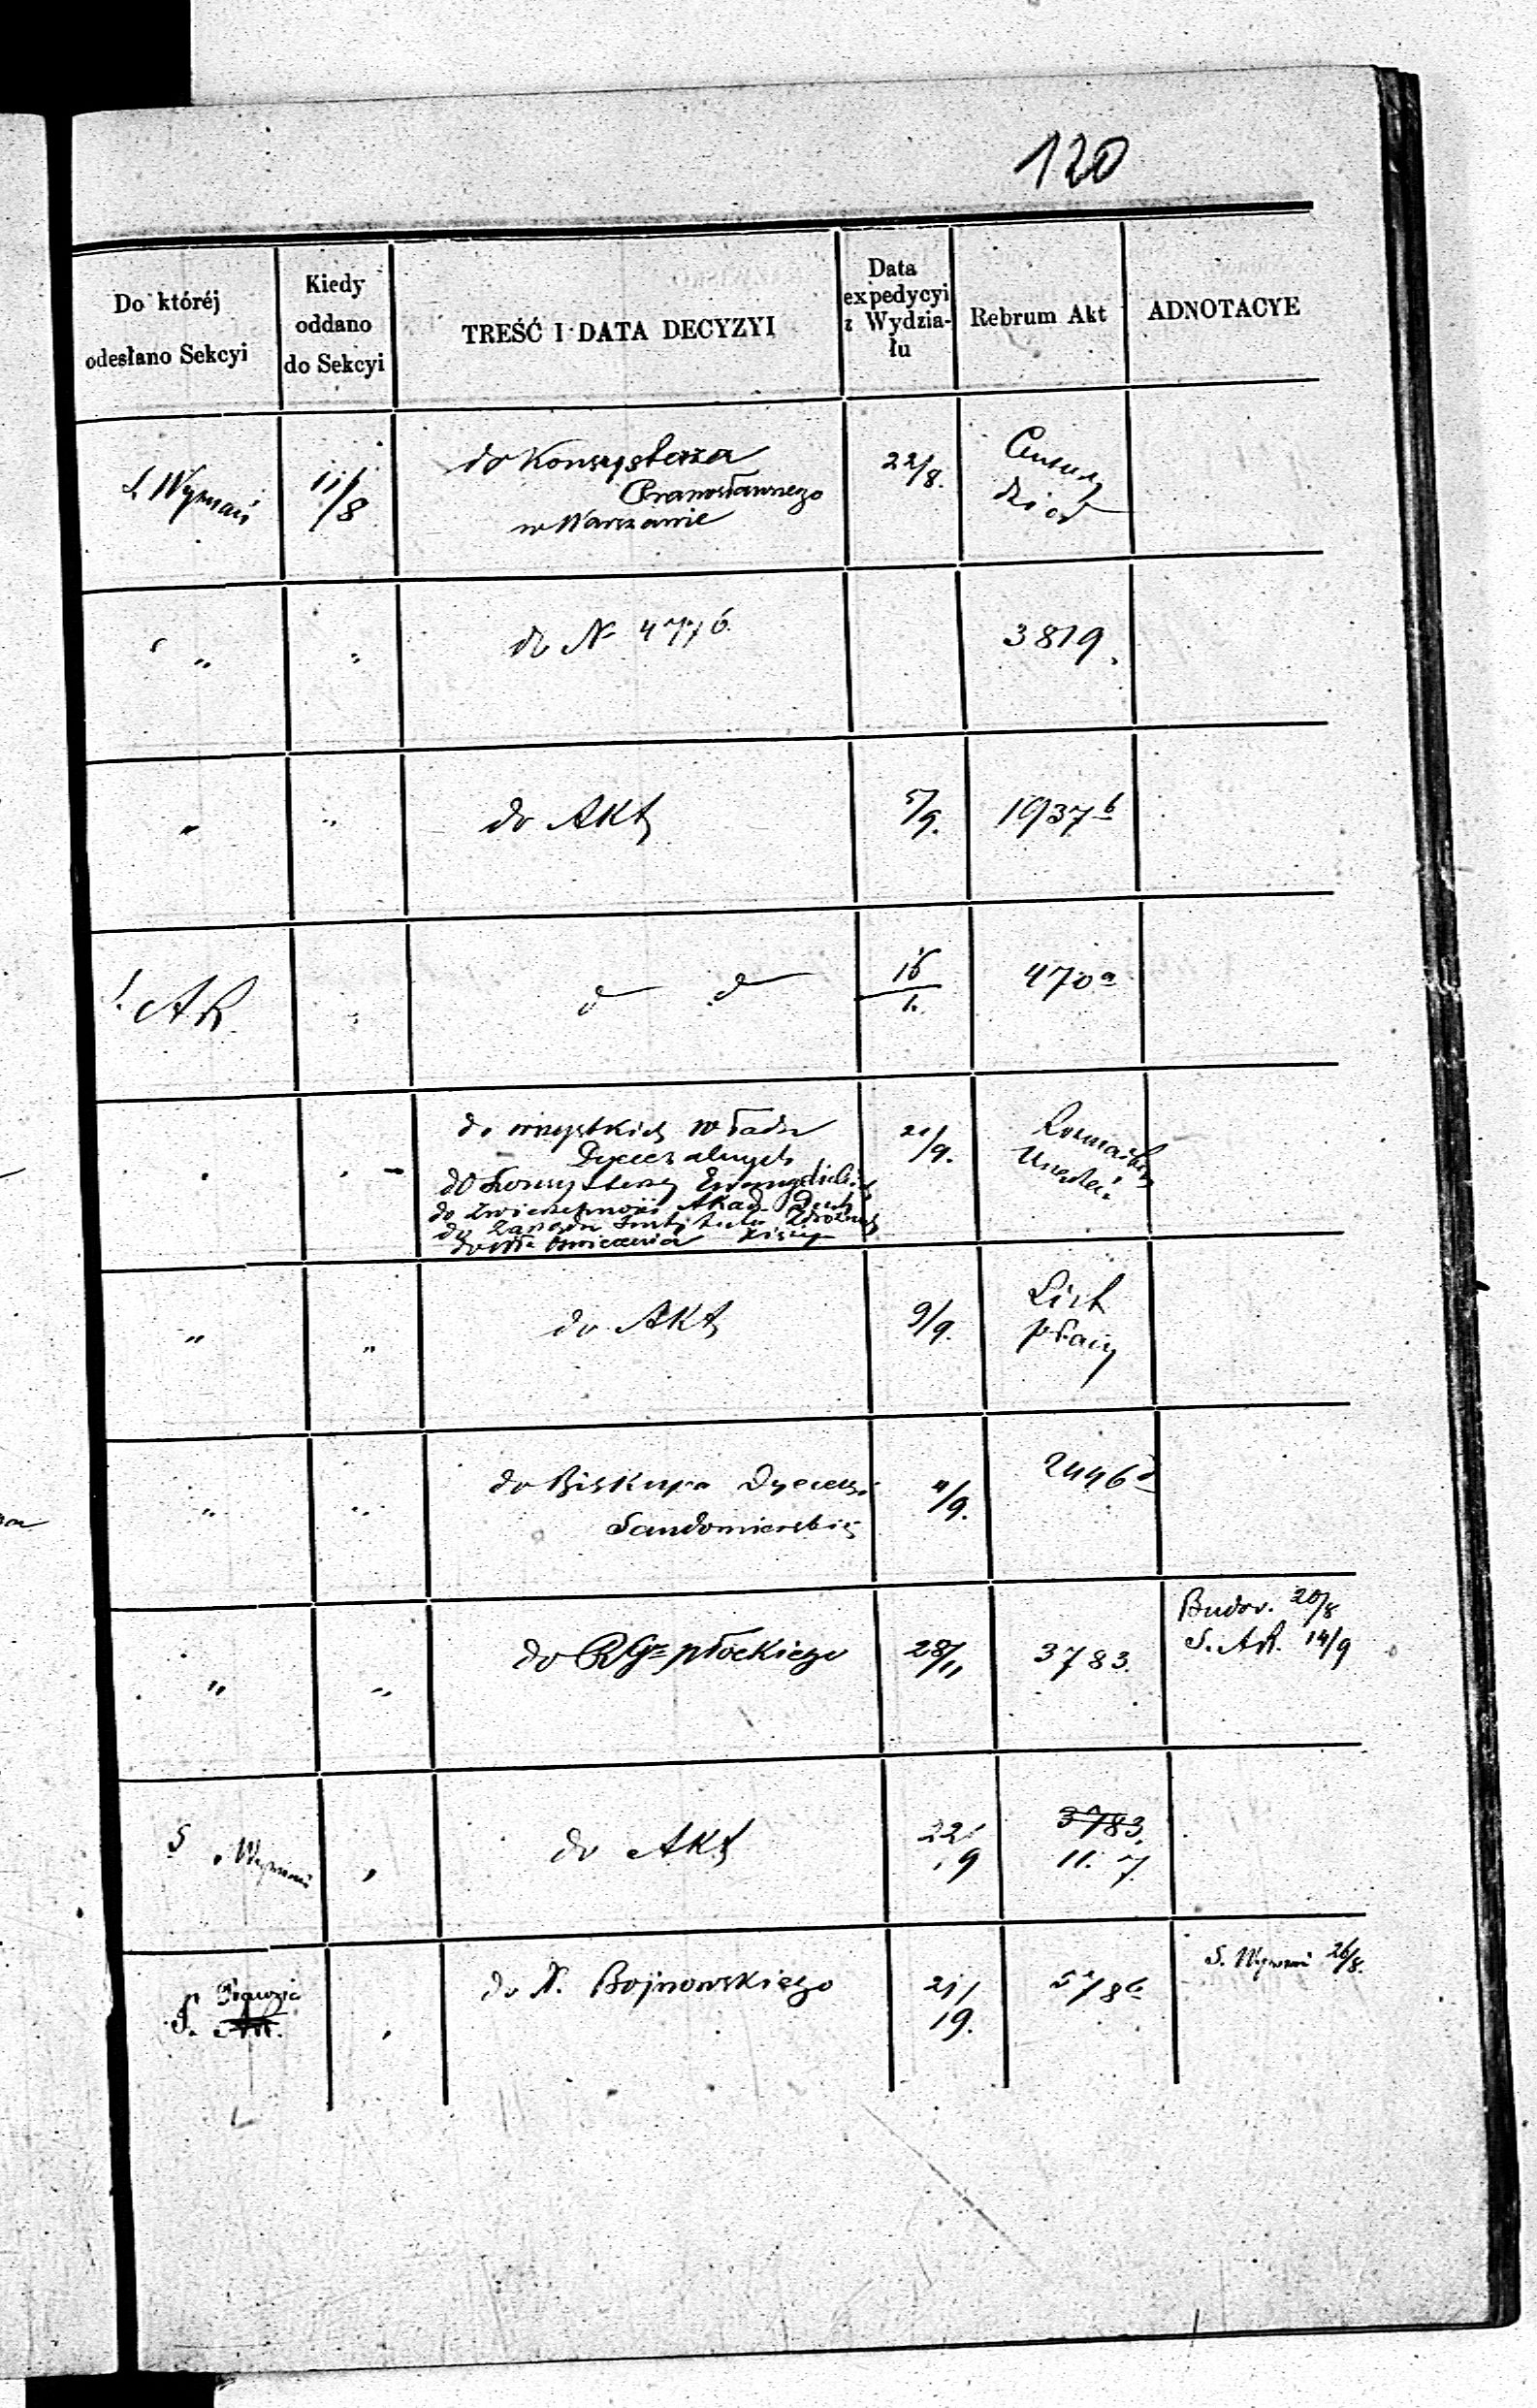 120
Do któréj
odesłano Sekcyi
Kiedy
oddano
do Sekcyi
TREŚĆ I DATA DECYZYI
Data
expedycyi
z Wydzia-
łu
Rebrum Akt
ADNOTACYE
S. Wyznań
11/8
do Konsystorza
Prawosławnego
w Warszawie
22/8.
Cenzury
dzieł
" "
"
do N 4776.
3819.
"
"
do Akt
5/9.
1937 b
S. AR.
"
d d
470 a
"
"
do wszystkich Władz
Dyecezalnych
do Konsystorzy Ewangelickich
do Zwierzchności Akad. Duch
do Zarządu Instytutu
21/9.
Rozmaitych
"
"
do Akt
9/9.
List
płacy
"
"
do Biskupa Dyecezi
Sandomierskiej
4/9.
2446 d
"
"
do RGu płockiego
28/11
3783.
Budow. 20/8
S. AR. 14/9
S. Wyznań
"
do Akt
22/9
3783.
11. 7
S.
"
do X. Bojnowskiego
21/9.
S. Wyznań 26/8.